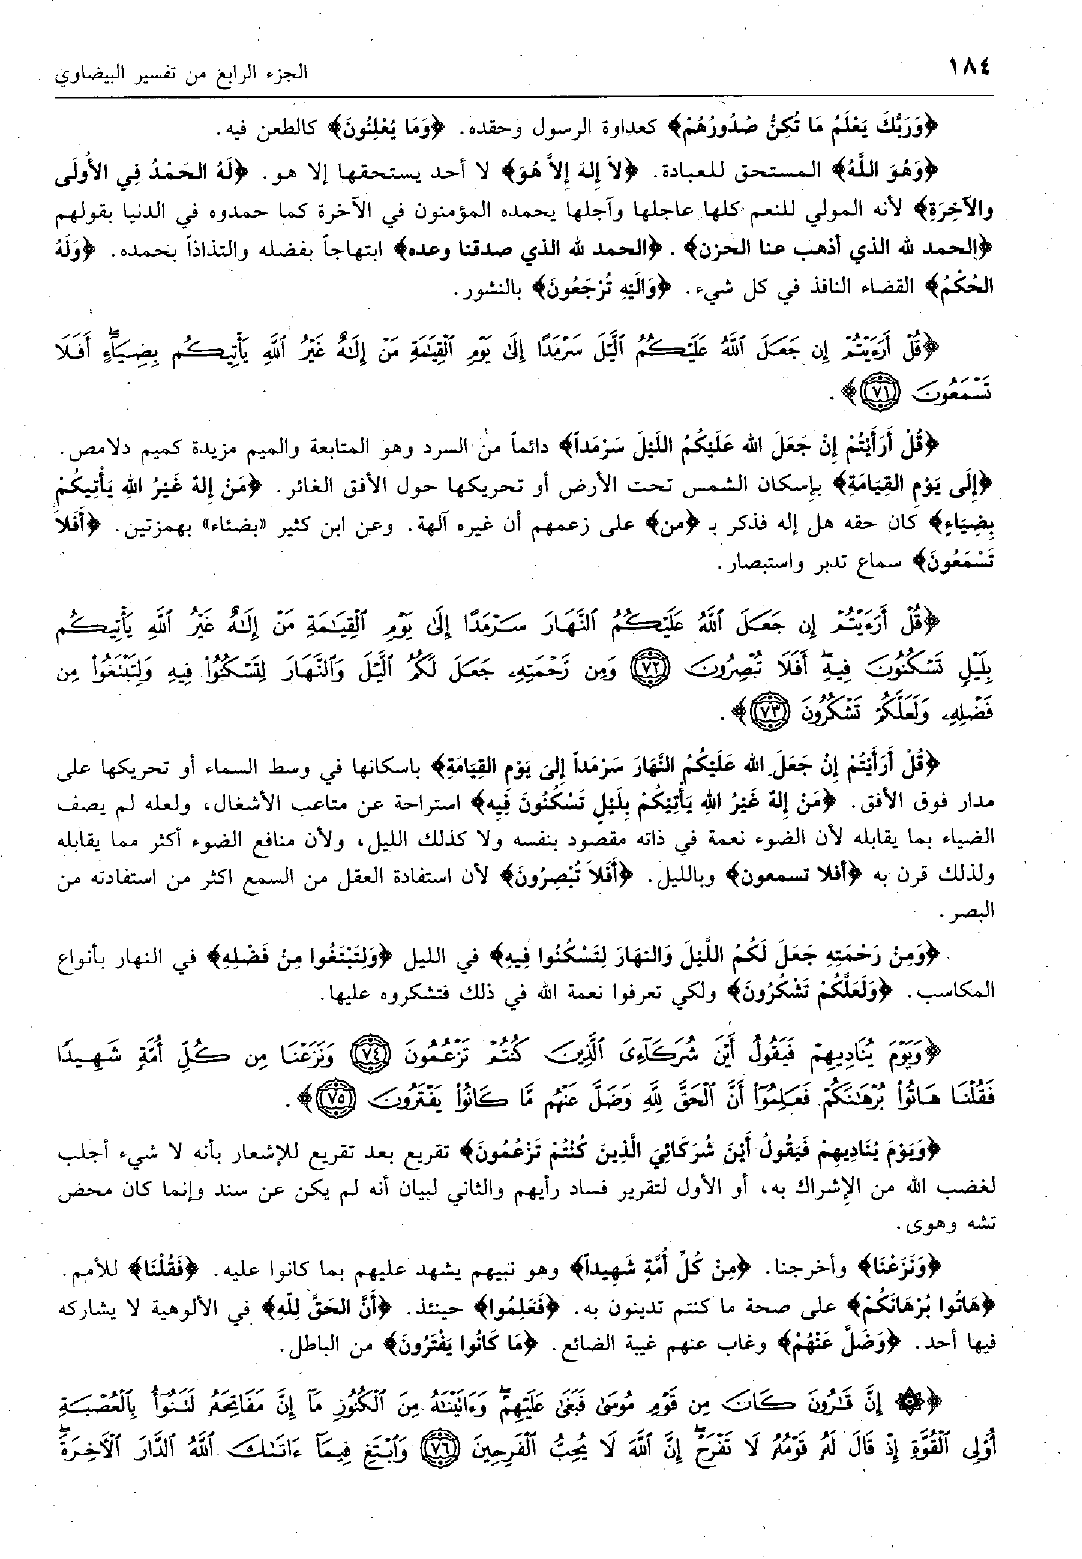 ١٨٤
الجزء الرابع من تفسير البيضاوي
﴿وَرَبُّكَ يَعْلَمُ مَا تُكِنُّ صُدُورُهُمْ﴾ كعداوة الرسول وحقده. ﴿وَمَا يُعْلِنُونَ﴾ كالطعن فيه.
﴿وَهُوَ اللَّهُ﴾ المستحق للعبادة. ﴿لاَ إِلهَ إِلاَّ هُوَ﴾ لا أحد يستحقها إلا هو. ﴿لَهُ الحَمْدُ فِي الأُولَى
والآخِرَةِ﴾ لأنه المولي للنعم كلها عاجلها وآجلها يحمده المؤمنون في الآخرة كما حمدوه في الدنيا بقولهم
﴿الحمد لله الذي أذهب عنا الحزن﴾. ﴿الحمد لله الذي صدقنا وعده﴾ ابتهاجاً بفضله والتذاذاً بحمده. ﴿وَلَهُ
الحُكْمُ﴾ القضاء النافذ في كل شيء. ﴿وَإِلَيْهِ تُرْجَعُونَ﴾ بالنشور.
﴿قُلْ أَرَءَيْتُمْ إِن جَعَلَ ٱللَّهُ عَلَيْكُمُ ٱلَّيْلَ سَرْمَدًا إِلَىٰ يَوْمِ ٱلْقِيَٰمَةِ مَنْ إِلَٰهٌ غَيْرُ ٱللَّهِ يَأْتِيكُم بِضِيَآءٍ أَفَلَا
تَسْمَعُونَ ﴿٧١﴾﴾.
﴿قُلْ أَرَأَيْتُمْ إِنْ جَعَلَ الله عَلَيْكُمُ اللَيْلَ سَرْمَداً﴾ دائماً من السرد وهو المتابعة والميم مزيدة كميم دلامص.
﴿إِلَى يَوْمِ القِيَامَةِ﴾ بإسكان الشمس تحت الأرض أو تحريكها حول الأفق الغائر. ﴿مَنْ إِلهٌ غَيْرُ الله يَأْتِيكُمْ
بِضِيَاءٍ﴾ كان حقه هل إله فذكر بـ ﴿من﴾ على زعمهم أن غيره آلهة. وعن ابن كثير «بضئاء» بهمزتين. ﴿أَفَلاَ
تَسْمَعُونَ﴾ سماع تدبر واستبصار.
﴿قُلْ أَرَءَيْتُمْ إِن جَعَلَ ٱللَّهُ عَلَيْكُمُ ٱلنَّهَارَ سَرْمَدًا إِلَىٰ يَوْمِ ٱلْقِيَٰمَةِ مَنْ إِلَٰهٌ غَيْرُ ٱللَّهِ يَأْتِيكُم
بِلَيْلٍ تَسْكُنُونَ فِيهِ أَفَلَا تُبْصِرُونَ ﴿٧٢﴾ وَمِن رَّحْمَتِهِۦ جَعَلَ لَكُمُ ٱلَّيْلَ وَٱلنَّهَارَ لِتَسْكُنُوا۟ فِيهِ وَلِتَبْتَغُوا۟ مِن
فَضْلِهِۦ وَلَعَلَّكُمْ تَشْكُرُونَ ﴿٧٣﴾﴾.
﴿قُلْ أَرَأَيْتُمْ إِنْ جَعَلَ الله عَلَيْكُمُ النَّهَارَ سَرْمَداً إِلىَ يَوْمِ القِيَامَةِ﴾ باسكانها في وسط السماء أو تحريكها على
مدار فوق الأفق. ﴿مَنْ إِلهٌ غَيْرُ اللهِ يَأْتِيكُمْ بِلَيْلٍ تَسْكُنُونَ فِيهِ﴾ استراحة عن متاعب الأشغال، ولعله لم يصف
الضياء بما يقابله لأن الضوء نعمة في ذاته مقصود بنفسه ولا كذلك الليل، ولأن منافع الضوء أكثر مما يقابله
ولذلك قرن به ﴿أفلا تسمعون﴾ وبالليل. ﴿أَفَلاَ تُبْصِرُونَ﴾ لأن استفادة العقل من السمع اكثر من استفادته من
البصر.
﴿وَمِنْ رَحْمَتِهِ جَعَلَ لَكُمُ اللَّيْلَ وَالنهَارَ لِتَسْكُنُوا فِيهِ﴾ في الليل ﴿وَلِتَبْتَغُوا مِنْ فَضْلِهِ﴾ في النهار بأنواع
المكاسب. ﴿وَلَعَلَّكُمْ تَشْكُرُونَ﴾ ولكي تعرفوا نعمة الله في ذلك فتشكروه عليها.
﴿وَيَوْمَ يُنَادِيهِمْ فَيَقُولُ أَيْنَ شُرَكَآءِىَ ٱلَّذِينَ كُنتُمْ تَزْعُمُونَ ﴿٧٤﴾ وَنَزَعْنَا مِن كُلِّ أُمَّةٍ شَهِيدًا
فَقُلْنَا هَاتُوا۟ بُرْهَٰنَكُمْ فَعَلِمُوٓا۟ أَنَّ ٱلْحَقَّ لِلَّهِ وَضَلَّ عَنْهُم مَّا كَانُوا۟ يَفْتَرُونَ ﴿٧٥﴾﴾.
﴿وَيَوْمَ يُنَادِيهِمْ فَيَقُولُ أَيْنَ شُرَكَائِيَ الَّذِينَ كُنْتُمْ تَزْعُمُونَ﴾ تقريع بعد تقريع للإشعار بأنه لا شيء أجلب
لغضب الله من الإشراك به، أو الأول لتقرير فساد رأيهم والثاني لبيان أنه لم يكن عن سند وإنما كان محض
تشه وهوى.
﴿وَنَزَعْنَا﴾ وأخرجنا. ﴿مِنْ كُلِّ أُمَّةٍ شَهِيداً﴾ وهو نبيهم يشهد عليهم بما كانوا عليه. ﴿فَقُلْنَا﴾ للأمم.
﴿هَاتُوا بُرْهَانَكُمْ﴾ على صحة ما كنتم تدينون به. ﴿فَعَلِمُوا﴾ حينئذ. ﴿أَنَّ الحَقَّ لِلَّهِ﴾ في الألوهية لا يشاركه
فيها أحد. ﴿وَضَلَّ عَنْهُمْ﴾ وغاب عنهم غيبة الضائع. ﴿مَا كَانُوا يَفْتَرُونَ﴾ من الباطل.
﴿۞ إِنَّ قَٰرُونَ كَانَ مِن قَوْمِ مُوسَىٰ فَبَغَىٰ عَلَيْهِمْ وَءَاتَيْنَٰهُ مِنَ ٱلْكُنُوزِ مَآ إِنَّ مَفَاتِحَهُۥ لَتَنُوٓأُ بِٱلْعُصْبَةِ
أُو۟لِى ٱلْقُوَّةِ إِذْ قَالَ لَهُۥ قَوْمُهُۥ لَا تَفْرَحْ إِنَّ ٱللَّهَ لَا يُحِبُّ ٱلْفَرِحِينَ ﴿٧٦﴾ وَٱبْتَغِ فِيمَآ ءَاتَىٰكَ ٱللَّهُ ٱلدَّارَ ٱلْءَاخِرَةَ